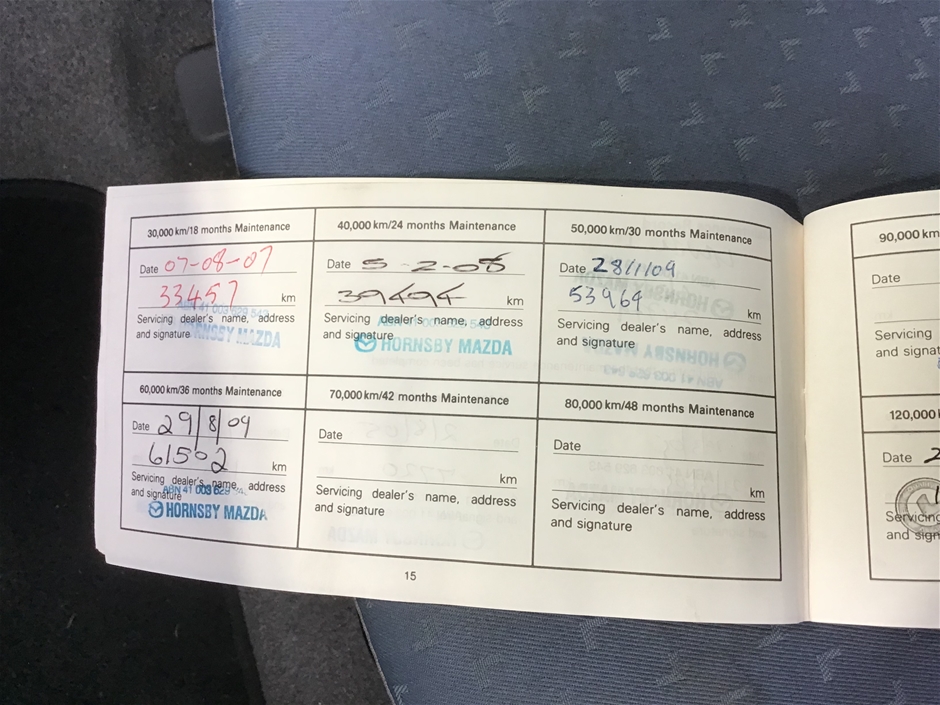 30,000 km/18 months Maintenance
Date 07-08-07
33457 km
Servicing dealer's name, address
and signature
ABN 41 003 629 543
HORNSBY MAZDA
40,000 km/24 months Maintenance
Date 5-2-08
39494 km
Servicing dealer's name, address
and signature
HORNSBY MAZDA
50,000 km/30 months Maintenance
Date 28/1/09
53964 km
Servicing dealer's name, address
and signature
60,000 km/36 months Maintenance
Date 29/8/09
61502 km
Servicing dealer's name, address
and signature
ABN 41 003 629
HORNSBY MAZDA
70,000 km/42 months Maintenance
Date
km
Servicing dealer's name, address
and signature
80,000 km/48 months Maintenance
Date
km
Servicing dealer's name, address
and signature
15
90,000 km
Date
Servicing
and signat
120,000
Date 2
Servicing
and sign